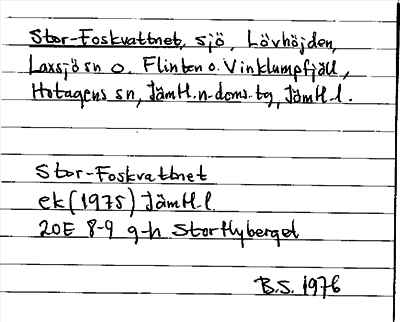 Stor-Foskvattnet, sjö, Lövhöjden,
Laxsjö sn o. Flinten o. Vinklumpfjäll,
Hotagens sn, Jämtl. n. doms. tg, Jämtl. l.
Stor-Foskvattnet
ek (1975) Jämtl. l.
20E 8-9 g-h Storflyberget
B.S. 1976